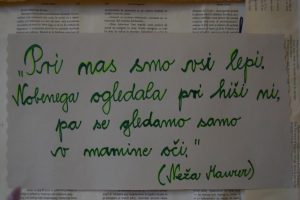 "Pri nas smo vsi lepi.
Nobenega ogledala pri hiši ni,
pa se gledamo samo
v mamine oči."
(Neža Maurer)